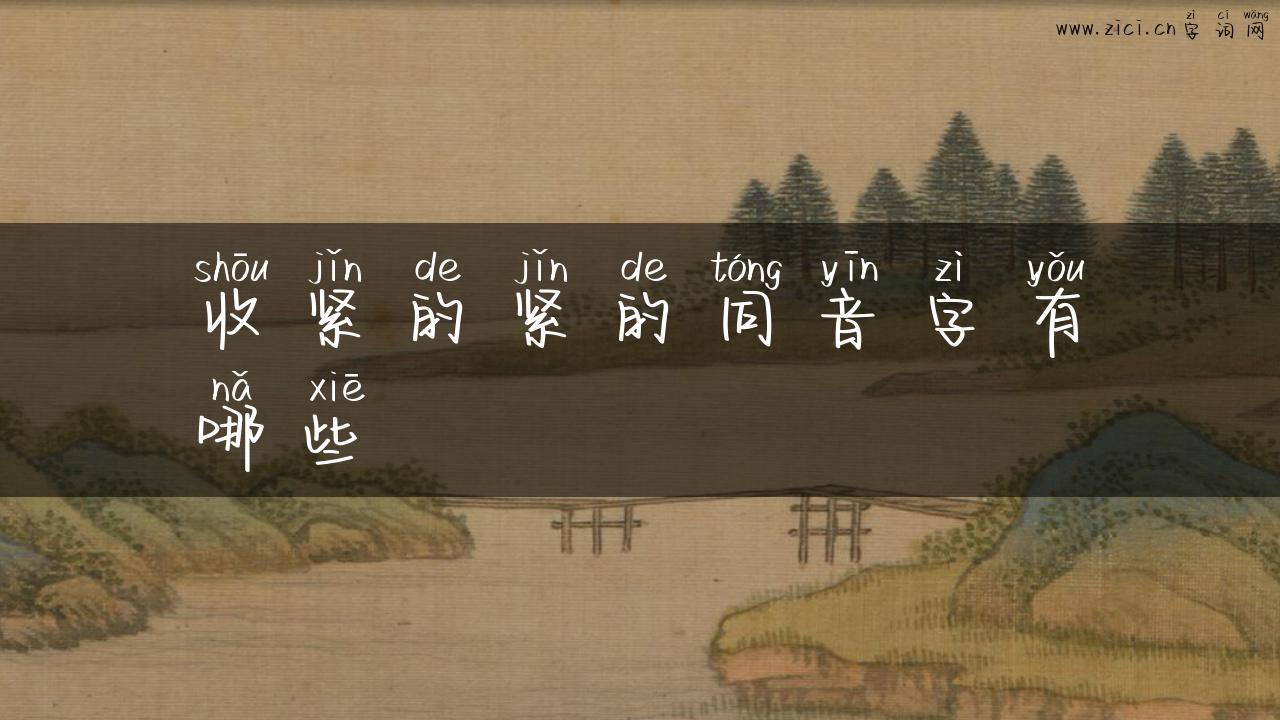 zì cí wǎng
www.zici.cn 字词网
shōu jǐn de jǐn de tóng yīn zì yǒu
收紧的紧的同音字有
nǎ xiē
哪些